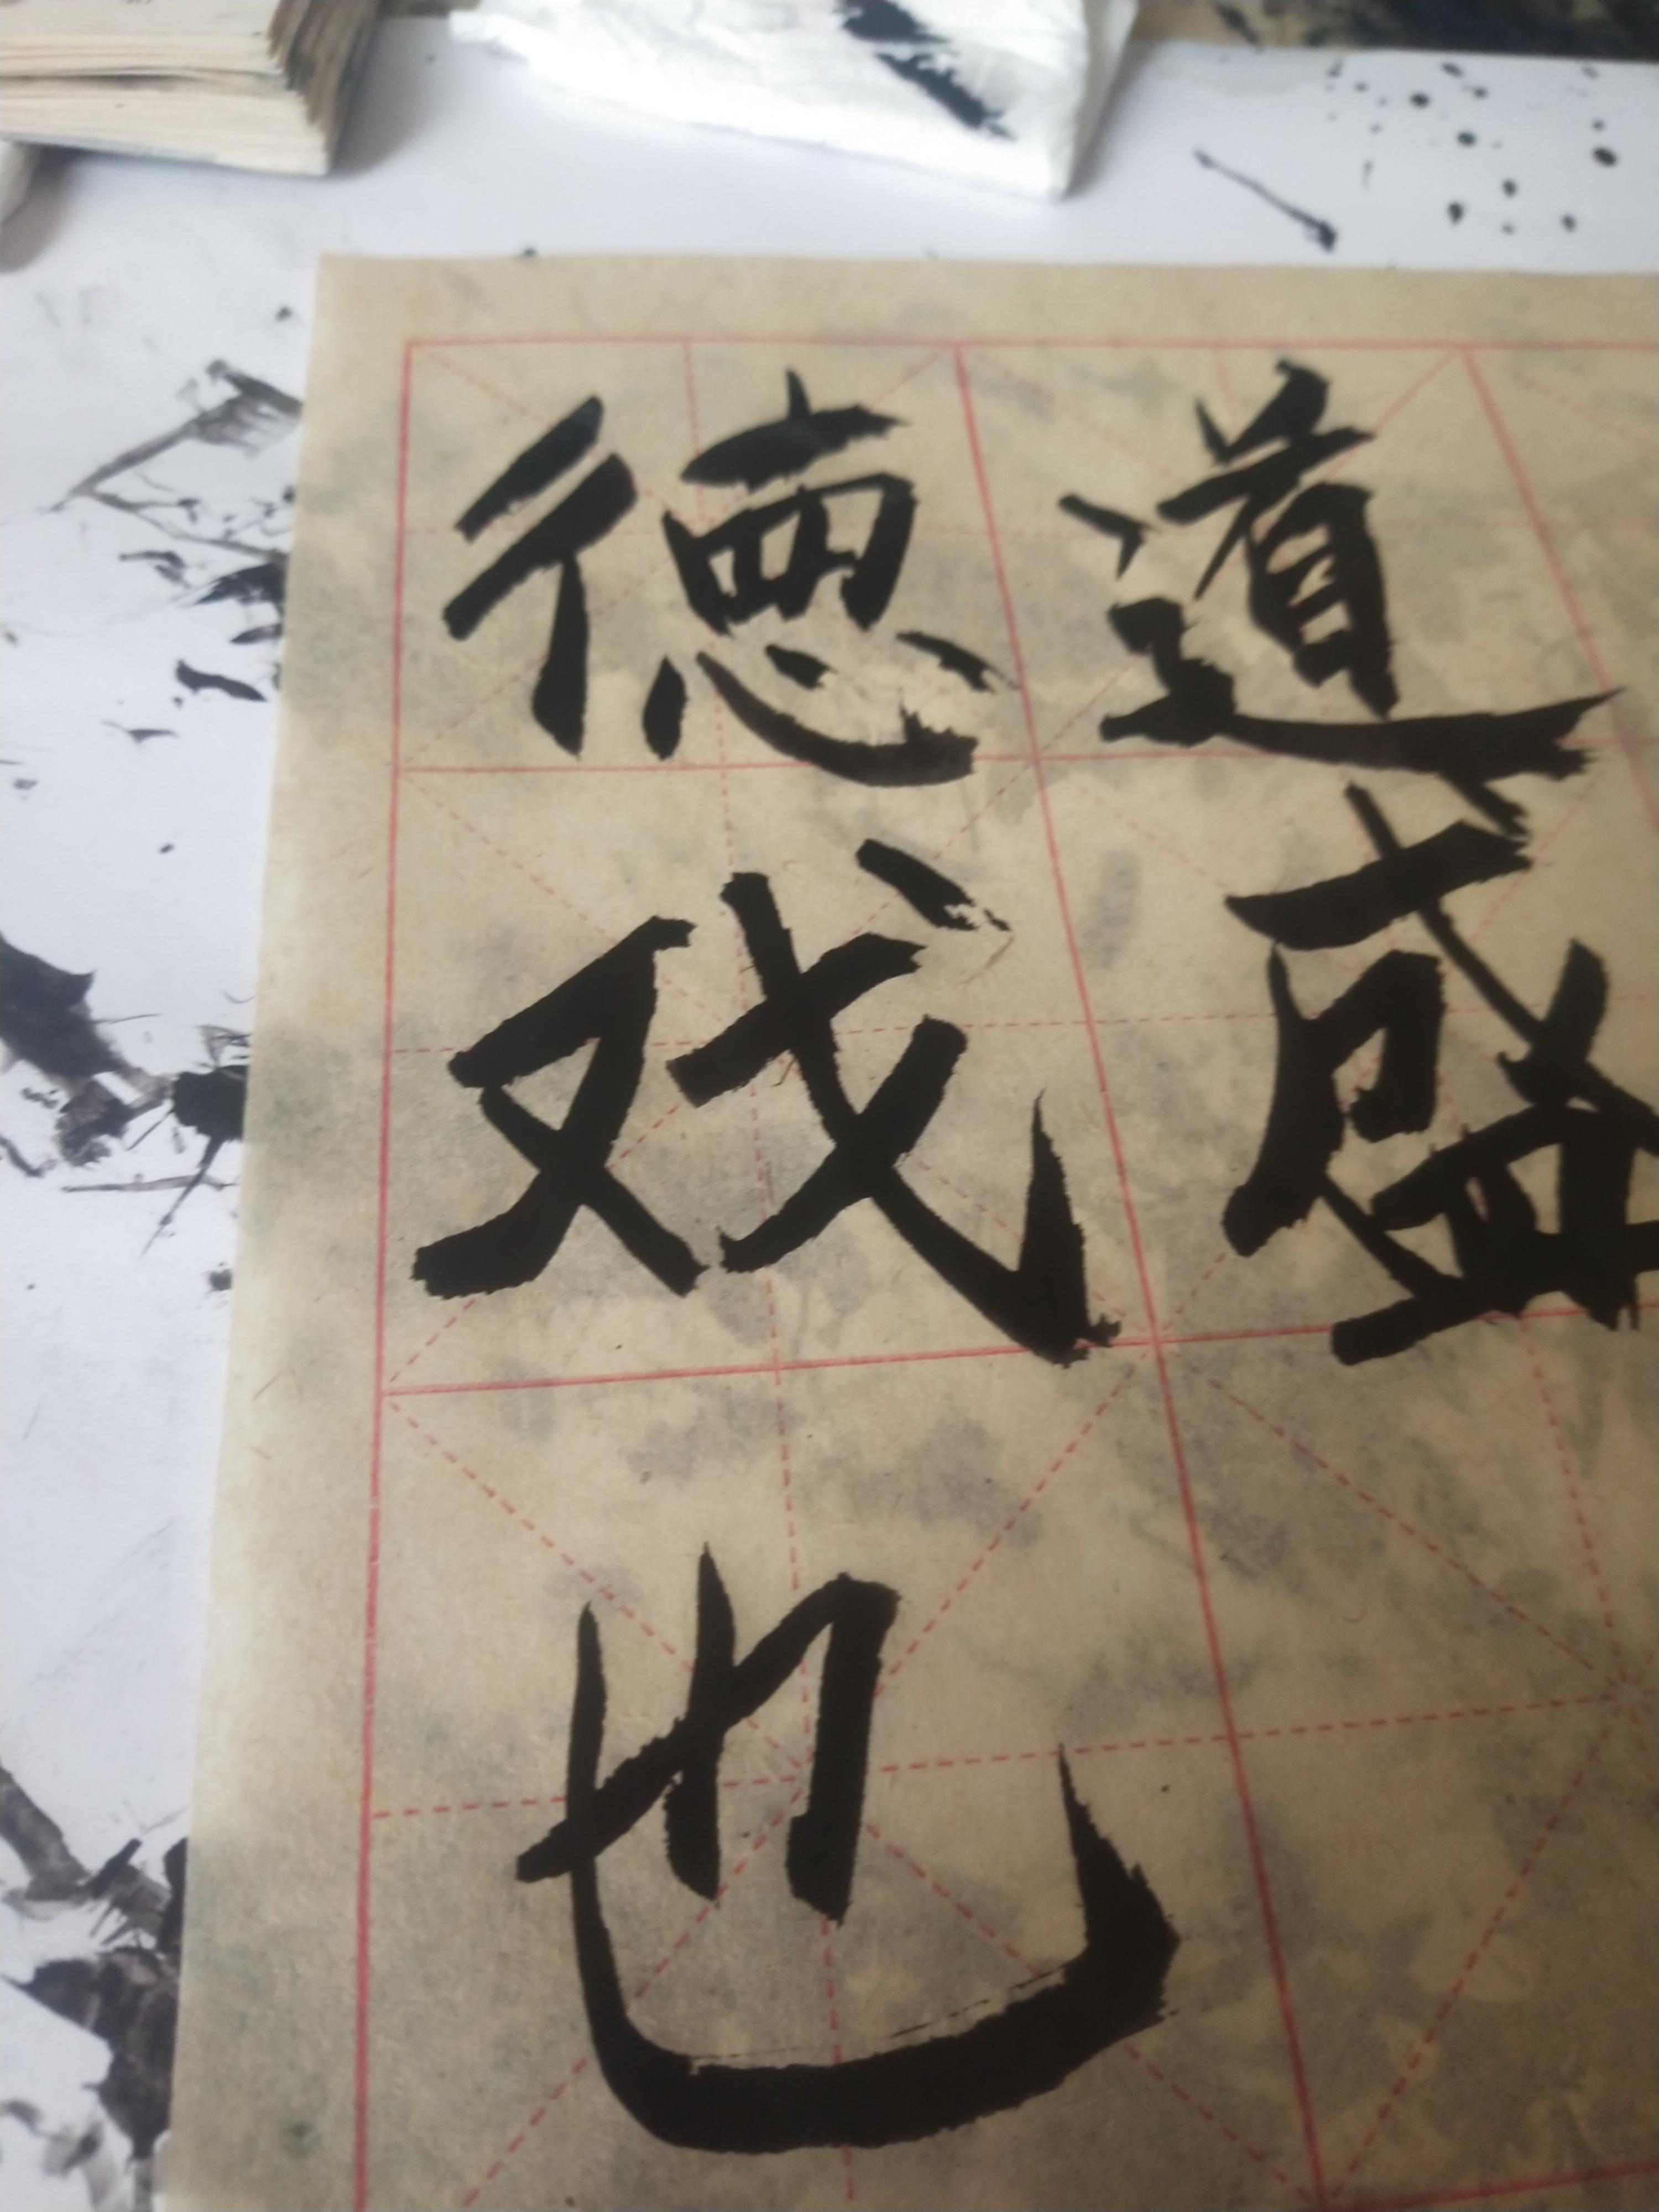 道盛
德戏也